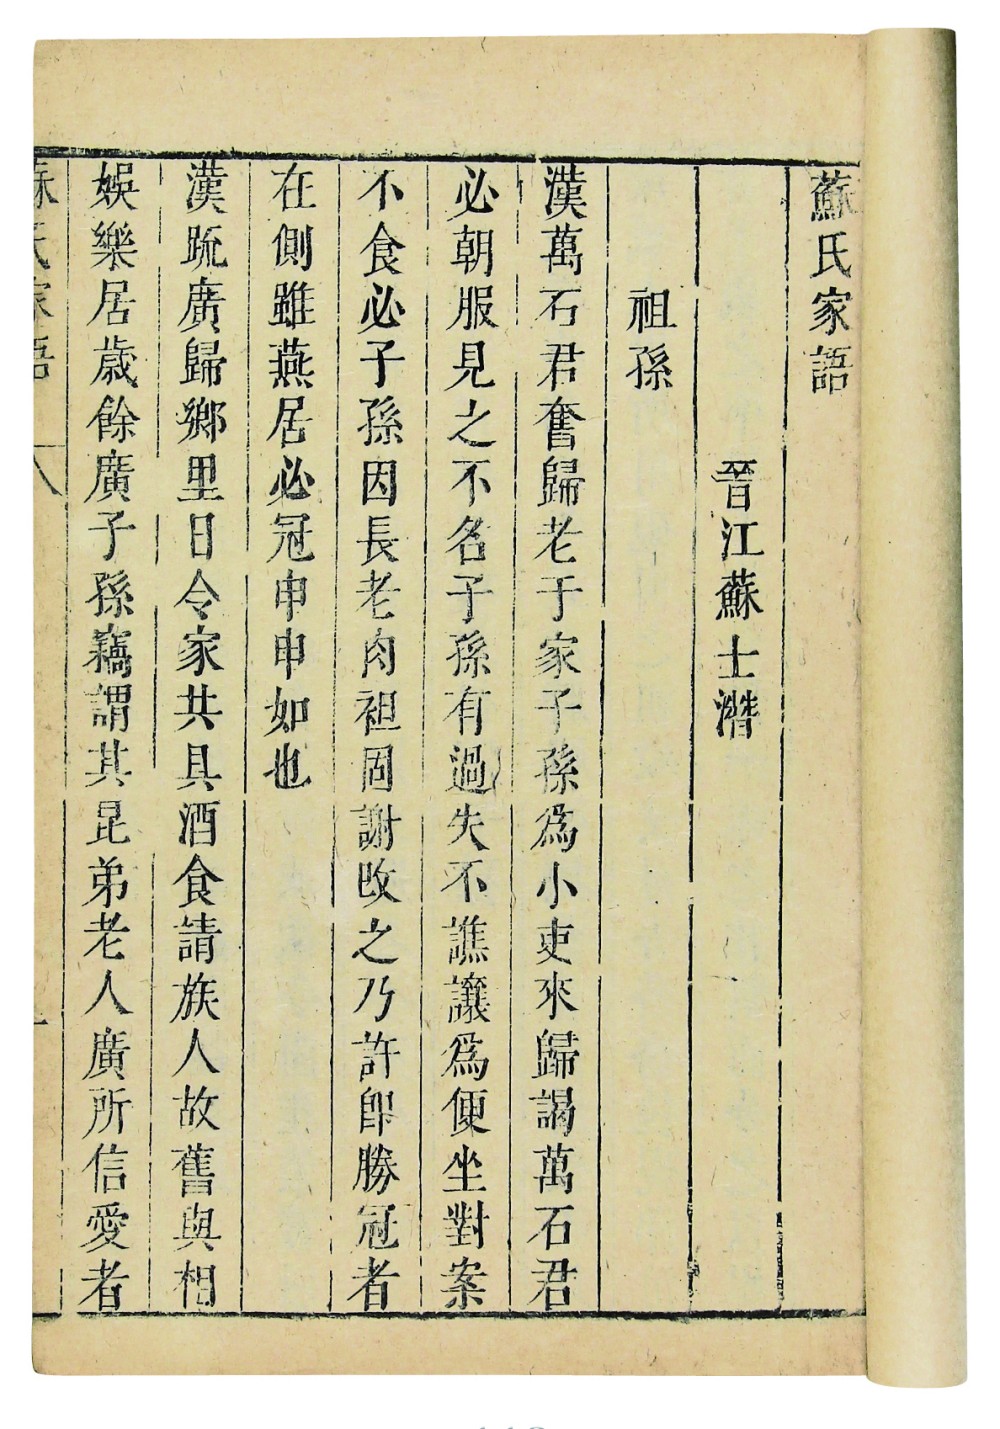 蘇氏家語
晉江蘇士潛
祖孫
漢萬石君奮歸老于家子孫爲小吏來歸謁萬石君
必朝服見之不名子孫有過失不譙讓爲便坐對案
不食必子孫因長老肉袒固謝改之乃許即勝冠者
在側雖燕居必冠申申如也
漢䟽廣歸鄉里日令家共具酒食請族人故舊與相
娛樂居歲餘廣子孫竊謂其昆弟老人廣所信愛者
蘇氏家語